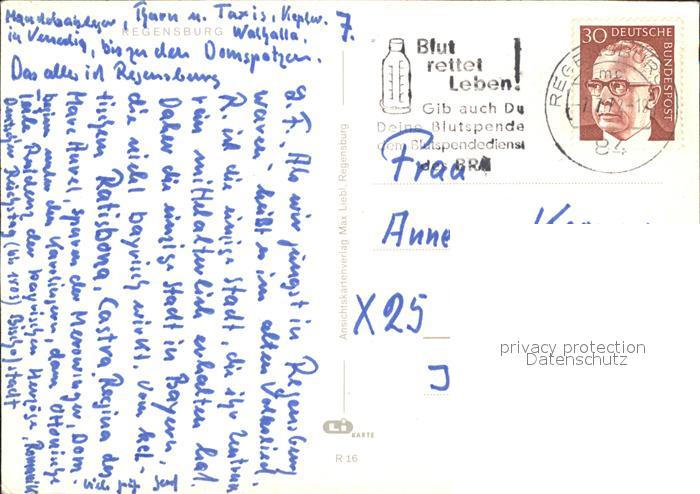 S. F., Als wir jüngst in Regensburg
waren" heißt es im alten Volkslied.
R ist die einzige Stadt, die ihr Zentrum
rein mittelalterlich erhalten hat.
Daher die einzige Stadt in Bayern,
die nicht bayrisch wirkt. Vom kel-
tischen Ratisbona, Castra Regina des
Marc Aurel, Spuren der Merowinger, Dom-
beginn unter den Karolingern, dann Ottonische
Residenz der bayrischen Herzöge, Romanik
Deutscher Reichstag (bis 1803) Bischofsstadt
Thurn u. Taxis, Kepler.
in Venedig, bis zu den Domspatzen.
Walhalla.
Das alles ist Regensburg
REGENSBURG
7.
Ansichtskartenverlag Max Liebl, Regensburg
Li KARTE
R 16
Blut
rettet
Leben!
Gib auch Du
Deine Blutspende
dem Blutspendedienst
des BRK
REGENSBURG
84
30 DEUTSCHE
BUNDESPOST
Frau
Anne
X 25
privacy protection
Datenschutz